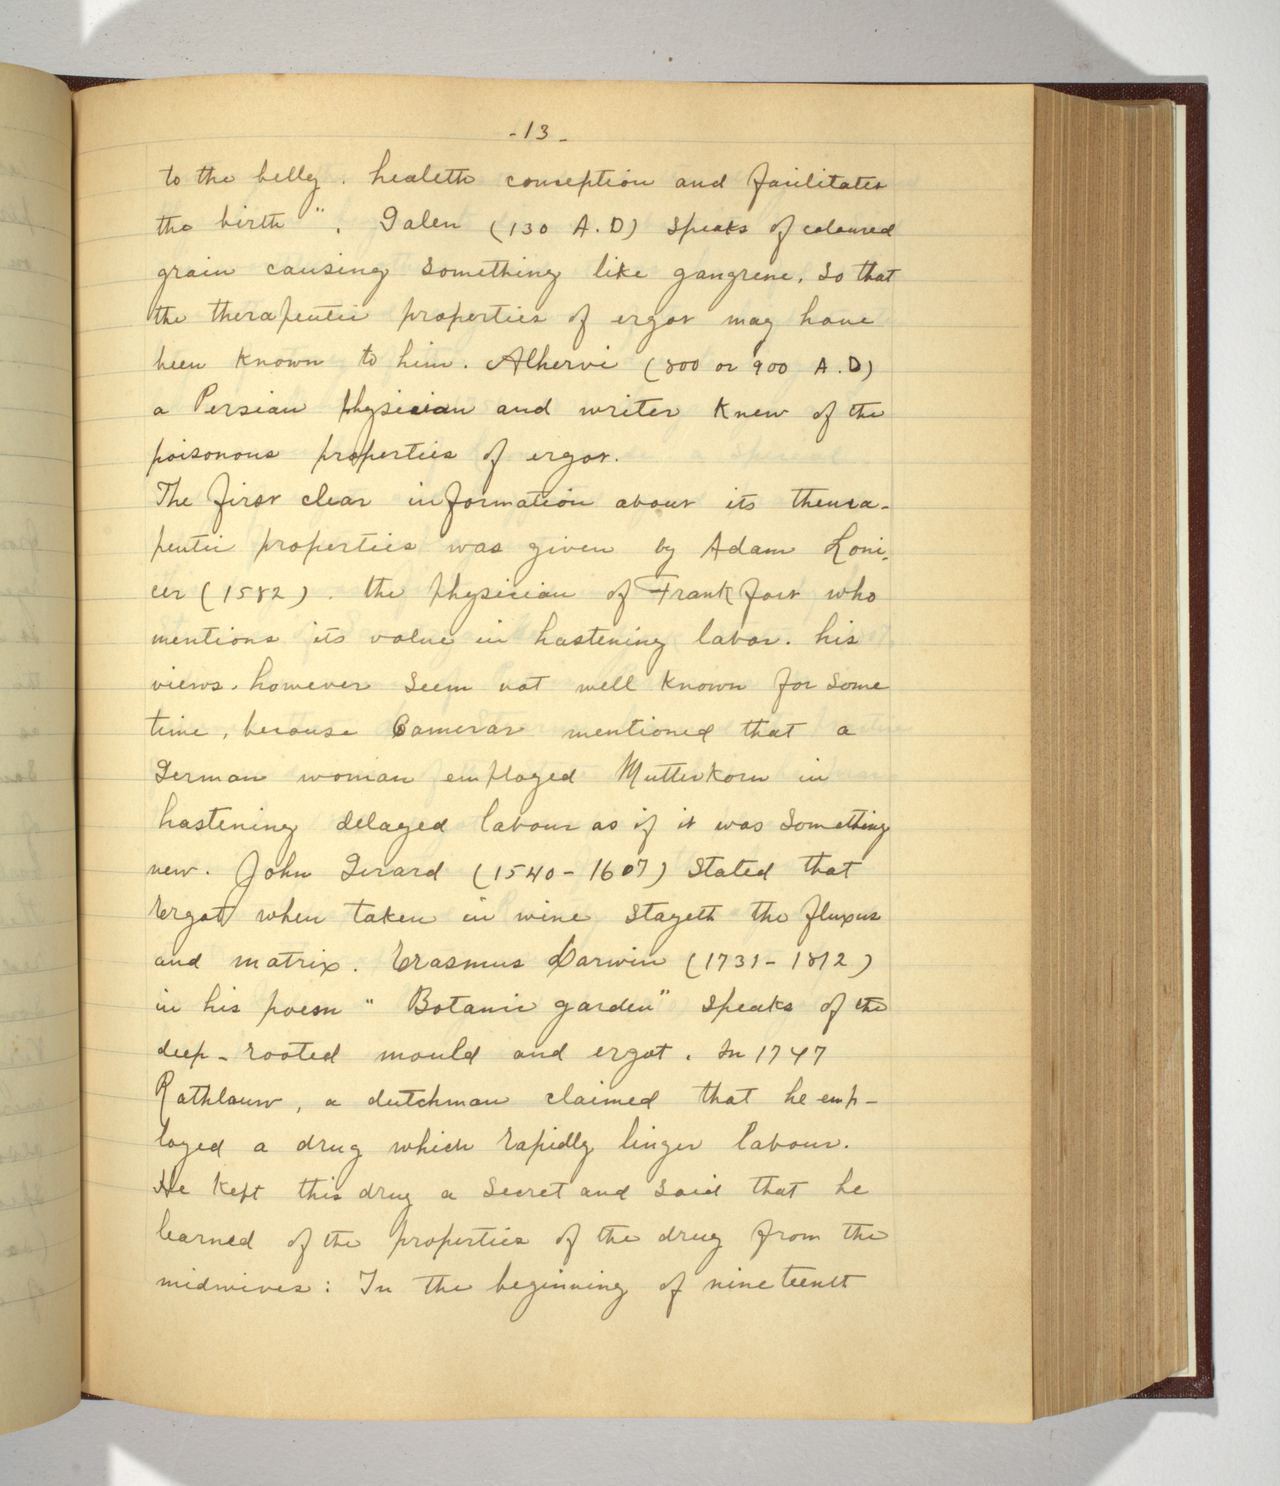 -13-
to the belly. healeth conseption and facilitates
the birth". Galen (130 A.D) speaks of coloured
grain causing something like gangrene. So that
the therapeutic properties of ergot may have
been known to him. Alhervi (800 or 900 A.D)
a Persian physician and writer knew of the
poisonous properties of ergot.
The first clear information about its thera-
peutic properties was given by Adam Loni-
cer (1582). the physician of Frankfort who
mentions its value in hastening labor. his
views. however seem not well known for some
time, because Camerar mentioned that a
German woman employed Mutterkorn in
hastening delayed labour as if it was something
new. John Gerard (1540-1607) stated that
Ergot when taken in wine stayeth the fluxus
and matrix. Erasmus Darwin (1731-1812)
in his poem "Botanic garden" speaks of the
deep-rooted mould and ergot. In 1747
Rathlauw, a dutchman claimed that he emp-
loyed a drug which rapidly linger labour.
He kept this drug a secret and said that he
learned of the properties of the drug from the
midwives: In the beginning of nineteenth